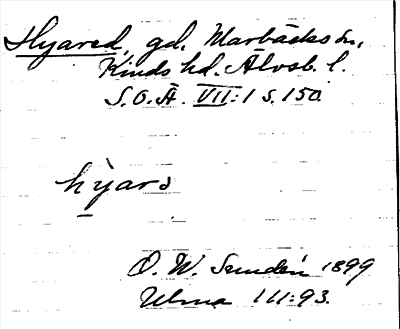 Hyared, gd. Marbäcks sn,
Kinds hd. Älvsb. l.
S.O.Ä. VII:1 s. 150.
hỳars
O. W. Sundén 1899
Ulma 111:93.